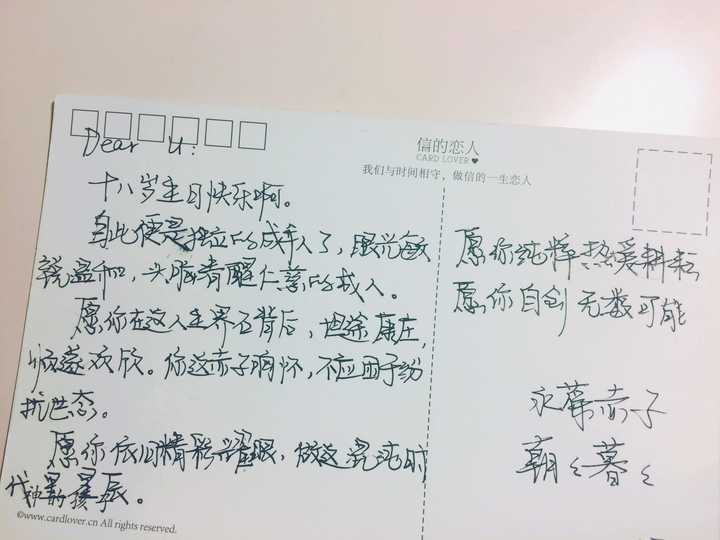 信的恋人
CARD LOVER
我们与时间相守，做信的一生恋人
Dear U:
十八岁生日快乐啊。
自此便是独立的成年人了，眼光敏
锐温和，头脑清醒仁慈的成人。
愿你在这人世界背后，坦途康庄，
恢意欢欣。你这赤子胸怀，不应困于纷
扰世态。
愿你依旧精彩耀眼，做这混沌时
代神的星辰。
愿你纯粹热爱耕耘
愿你自创无数可能
永葆赤子
朝々暮々
©www.cardlover.cn All rights reserved.